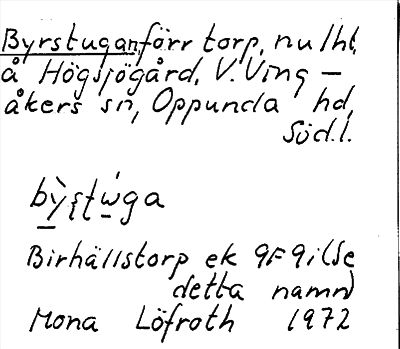 Byrstugan, förr torp, nu lht,
å Högsjögård, V. Ving-
åkers sn, Oppunda hd,
Söd. l.
Birhällstorp ek 9F9i (se
detta namn)
Mona Löfroth 1972